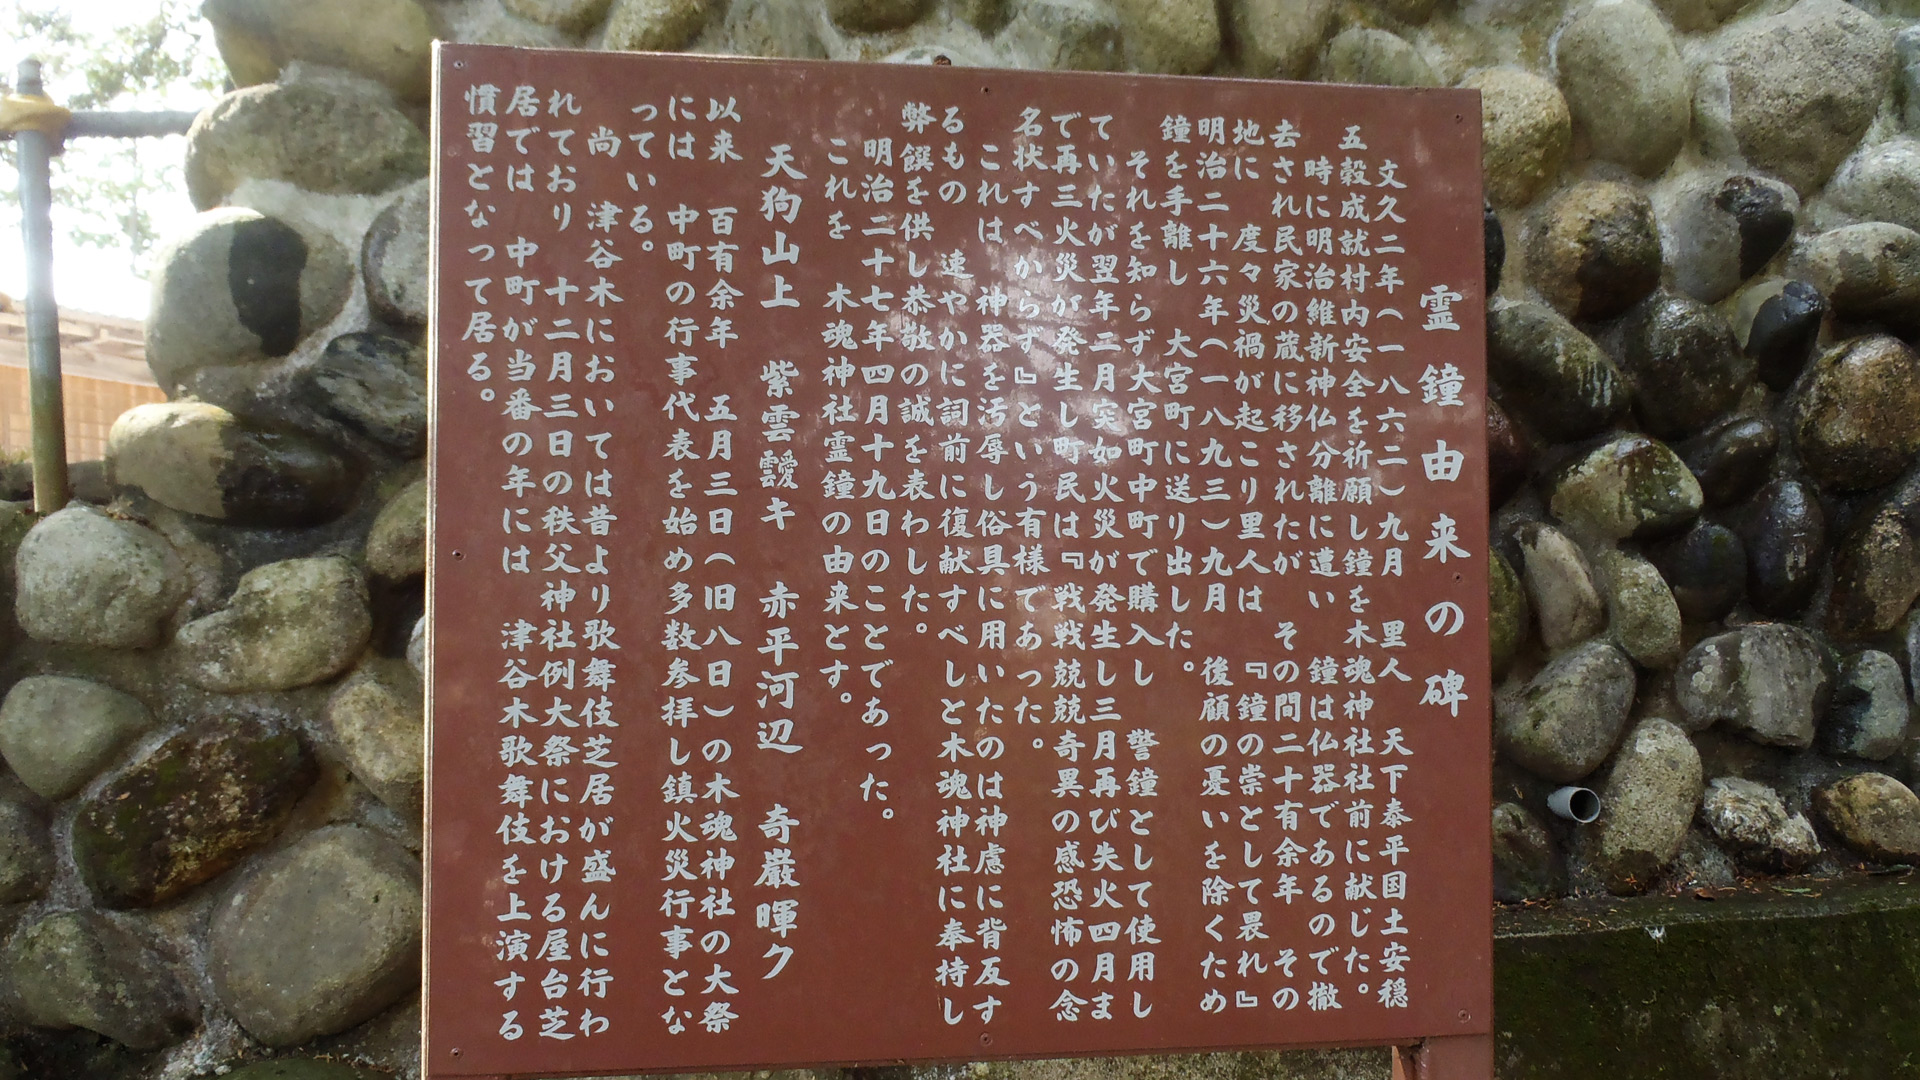 霊鐘由来の碑
文久二年(一八六二)九月 里人 天下泰平国土安穏
五穀成就村内安全を祈願し鐘を木魂神社社前に献じた。
時に明治維新神仏分離に遭い 鐘は仏器であるので撤
去され民家の蔵に移されたが その間二十有余年 その
地に 度々災禍が起こり里人は 『鐘の崇として畏れ』
明治二十六年(一八九三)九月 後顧の憂いを除くため
鐘を手離し 大宮町に送り出した。
それを知らず大宮町中町で購入し 警鐘として使用し
ていたが翌年二月突如火災が発生し三月再び失火四月ま
で再三火災が発生し町民は『戦戦兢兢奇異の感恐怖の念
名状すべからず』という有様てあった。
これは 神器を汚辱し俗具に用いたのは神慮に背反す
るもの 速やかに詞前に復献すべしと木魂神社に奉持し
弊饌を供し恭敬の誠を表わした。
明治二十七年四月十九日のことであった。
これを 木魂神社霊鐘の由来とす。
天狗山上 紫雲靉キ 赤平河辺 奇巌暉ク
以来 百有余年 五月三日(旧八日)の木魂神社の大祭
には 中町の行事代表を始め多数参拝し鎮火災行事とな
っている。
尚 津谷木においては昔より歌舞伎芝居が盛んに行わ
れており 十二月三日の秩父神社例大祭における屋台芝
居では 中町が当番の年には 津谷木歌舞伎を上演する
慣習となって居る。